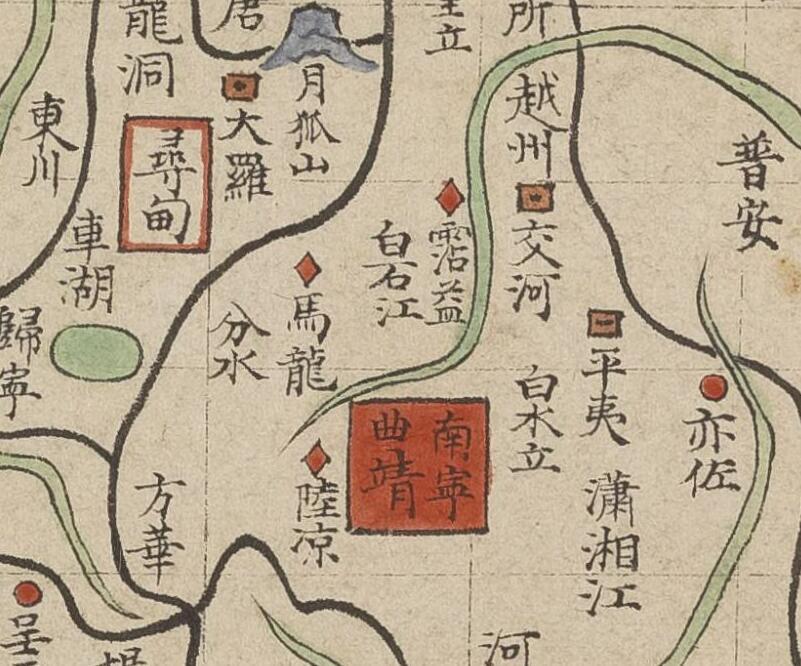 普安
亦佐
所
越州
交河
平夷
白水立
瀟湘江
河
立
霑益
白石江
南寧
曲靖
月狐山
馬龍
陸凉
唐
大羅
分水
龍洞
尋甸
方華
東川
車湖
歸寧